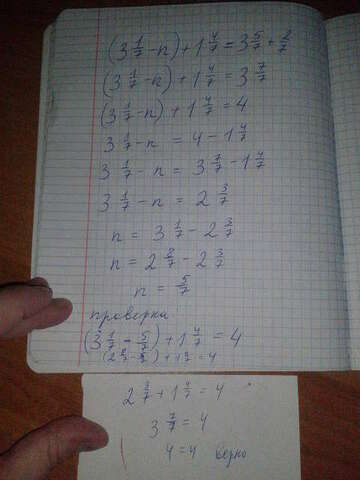 (3 1/7 - n) + 1 4/7 = 3 5/7 + 2/7
(3 1/7 - n) + 1 4/7 = 3 7/7
(3 1/7 - n) + 1 4/7 = 4
3 1/7 - n = 4 - 1 4/7
3 1/7 - n = 3 7/7 - 1 4/7
3 1/7 - n = 2 3/7
n = 3 1/7 - 2 3/7
n = 2 8/7 - 2 3/7
n = 5/7
проверка
(3 1/7 - 5/7) + 1 4/7 = 4
(2 8/7 - 5/7) + 1 4/7 = 4
2 3/7 + 1 4/7 = 4
3 7/7 = 4
4 = 4 верно